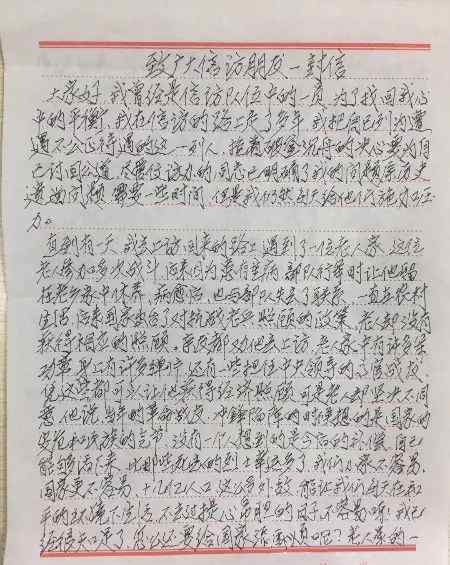 致广大信访朋友一封信
大家好，我曾经是信访队伍中的一员，为了找回我心
中的平衡，我在信访的路上走了多年，我把自己列为遭
遇不公正待遇的这一列人，抱着破釜沉舟的决心要为自
己讨回公道，尽管信访办的同志已明确了我的问题属历史
遗留问题，需要一些时间，但是我仍然天天给他们施加压
力。
直到有一天，我去上访回来的路上，遇到了一位老人家，这位
老人家参加多次战斗，后来因为受伤生病，部队行军时让他留
在老乡家中休养，病愈后，也与部队失去了联系，一直在农村
生活，后来国家出台了对抗战老兵照顾的政策，老人却没有
获得相应的照顾。亲友都劝他去上访，老人家中有许多军
功章，
凭这些都可以让他获得经济照顾，可是老人却坚决不同
意，他说，当年的革命战友，冲锋陷阵的时候想的是国家的
没有一个人想到的是今后的补偿，自己
能够活下来，比那些死去的烈士幸运多了，我们小家不容易，
国家更不容易，十几亿人口，能让我们每天在和
平的环境下生活，不去过提心吊胆的日子，不容易啊！我已
经很知足了，怎么还要给国家添麻烦呢？老人家的一